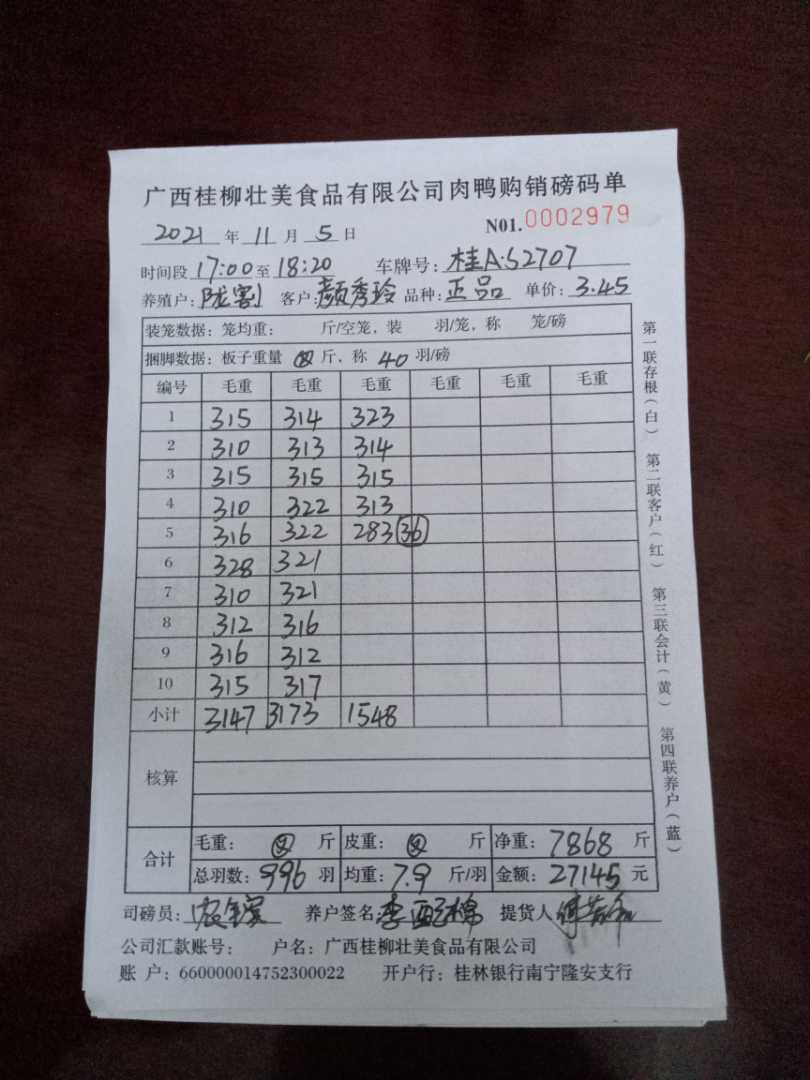 广西桂柳壮美食品有限公司肉鸭购销磅码单
2021 年 11 月 5 日 N01.0002979
时间段 17:00 至 18:20 车牌号: 桂A·S2707
养殖户: 陇割 客户: 颜秀玲 品种: 正品 单价: 3.45
装笼数据: 笼均重: 斤/空笼, 装 羽/笼, 称 笼/磅
捆脚数据: 板子重量 斤, 称 40 羽/磅
编号 毛重 毛重 毛重 毛重 毛重 毛重
1 315 314 323
2 310 313 314
3 315 315 315
4 310 322 313
5 316 322 283 36
6 328 321
7 310 321
8 312 316
9 316 312
10 315 317
小计 3147 3173 1548
核算
合计
毛重: 斤 皮重: 斤 净重: 7868 斤
总羽数: 996 羽 均重: 7.9 斤/羽 金额: 27145 元
司磅员: 养户签名 李 提货人
公司汇款账号: 户名: 广西桂柳壮美食品有限公司
账 户: 660000014752300022 开户行: 桂林银行南宁隆安支行
第一联存根(白) 第二联客户(红) 第三联会计(黄) 第四联养户(蓝)